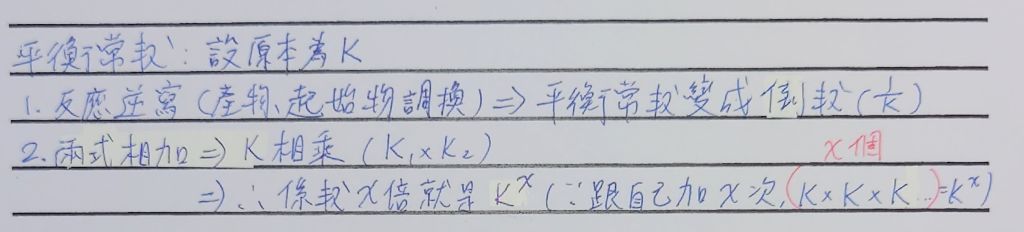 平衡常数：設原本為K
1. 反應逆寫（產物、起始物調換）⇒ 平衡常数變成倒数（1/K）
2. 兩式相加 ⇒ K相乘（K₁×K₂）
x個
⇒ ∴ 係数x倍就是 Kˣ（∵跟自己加x次，(K×K×K...)=Kˣ）